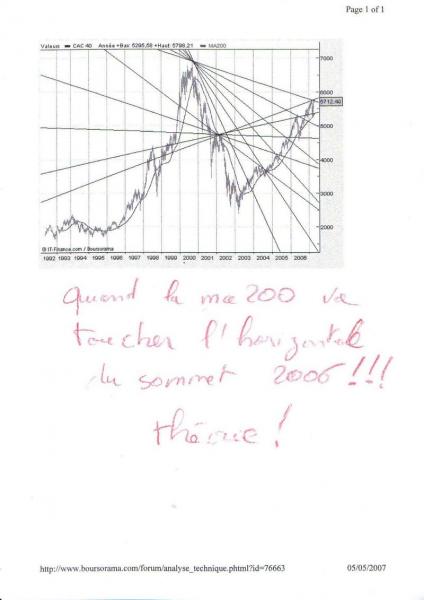 Page 1 of 1
Valeurs CAC 40 Année +Bas 5295,58 +Haut 5798,21 MA200
7000
6000
5712.40
5000
4000
3000
2000
© IT-Finance.com / Boursorama
1992 1993 1994 1995 1996 1997 1998 1999 2000 2001 2002 2003 2004 2005 2006
Quand la ma200 va
toucher l'horizontale
du sommet 2006!!!
théorie!
http://www.boursorama.com/forum/analyse_technique.phtml?id=76663
05/05/2007